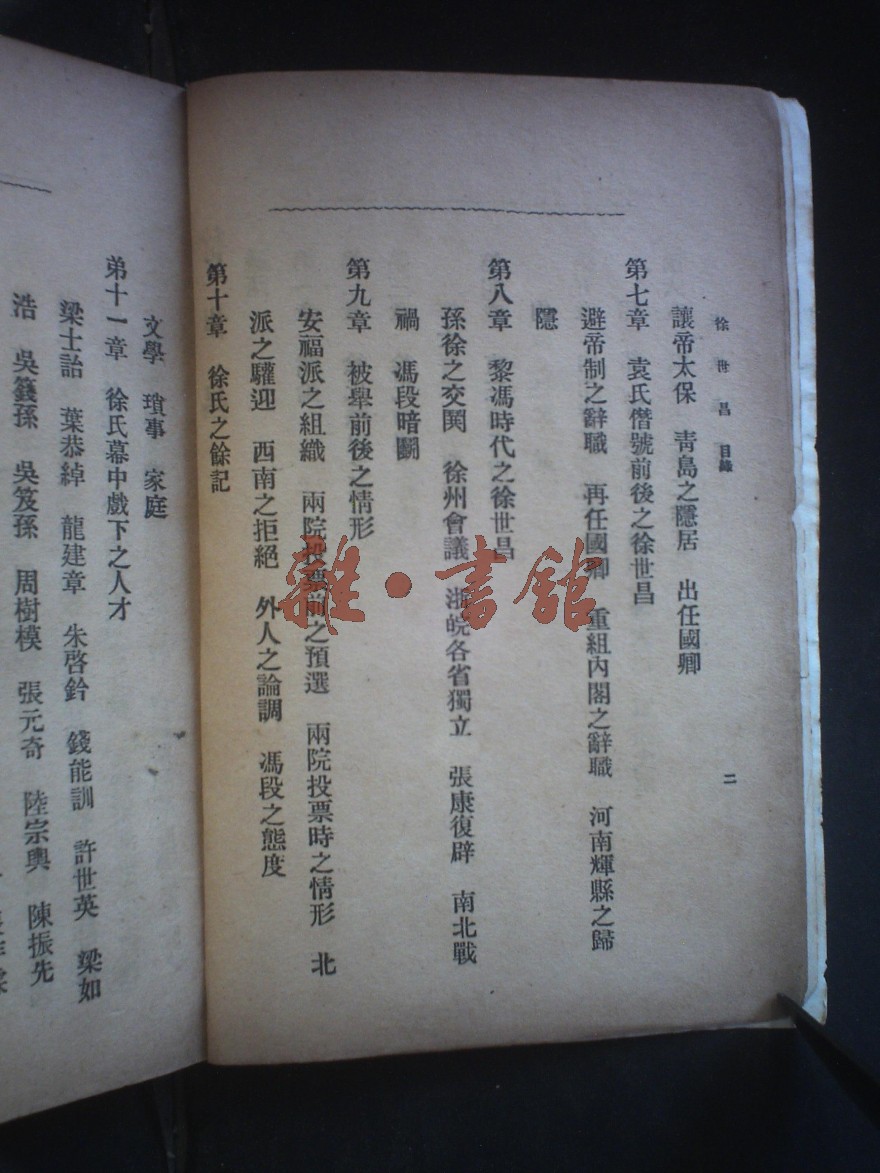 徐世昌 目錄
二
讓帝太保 靑島之隱居 出任國卿
第七章 袁氏僭號前後之徐世昌
避帝制之辭職 再任國卿 重組內閣之辭職 河南輝縣之歸
隱
第八章 黎馮時代之徐世昌
孫徐之交鬨 徐州會議 浙皖各省獨立 張康復辟 南北戰
禍 馮段暗鬭
第九章 被舉前後之情形
安福派之組織 兩院投票前之預選 兩院投票時之情形 北
派之驩迎 西南之拒絕 外人之論調 馮段之態度
第十章 徐氏之餘記
文學 瑣事 家庭
弟十一章 徐氏幕中戲下之人才
梁士詒 葉恭綽 龍建章 朱啓鈐 錢能訓 許世英 梁如
浩 吳籛孫 吳笈孫 周樹模 張元奇 陸宗輿 陳振先
雜·書舘